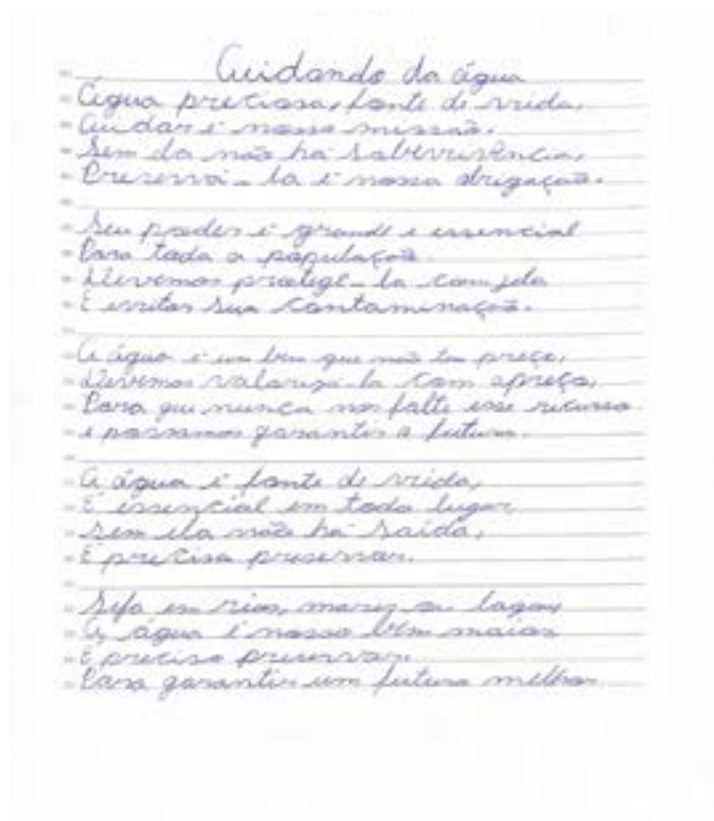 Cuidando da água
Água preciosa, fonte de vida,
Cuidar é nossa missão.
Sem ela não há sobrevivência,
Preservá-la é nossa obrigação.
Seu poder é grande e essencial
Para toda a população.
Devemos protegê-la com zelo
E evitar sua contaminação.
A água é um bem que não tem preço,
Devemos valorizá-la com apreço,
Para que nunca nos falte esse recurso
e possamos garantir o futuro.
A água é fonte de vida,
É essencial em todo lugar
Sem ela não há saída,
É preciso preservar.
Seja em rios, mares ou lagos,
A água é nosso bem maior
É preciso preservar.
Para garantir um futuro melhor